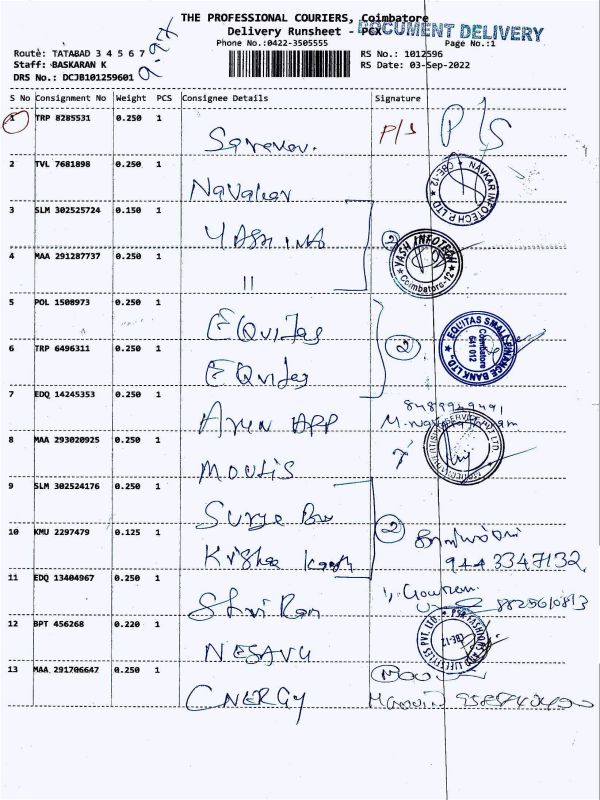 THE PROFESSIONAL COURIERS, Coimbatore
Delivery Runsheet - PCX
DOCUMENT DELIVERY
Phone No.:0422-3505555
Page No.:1
Route: TATABAD 3 4 5 6 7
RS No.: 1012596
Staff: BASKARAN K
RS Date: 03-Sep-2022
DRS No.: DCJB101259601
S No Consignment No Weight PCS Consignee Details Signature
1 TRP 8285531 0.250 1 P/S P/S
2 TVL 7681898 0.250 1
NAVKAR INFOTECH P LTD CBE-12
3 SLM 302525724 0.150 1
4 MAA 291287737 0.250 1 " 2
YASH INFOTECH Coimbatore-12
5 POL 1508973 0.250 1 EQuitas
6 TRP 6496311 0.250 1 EQuitas 2
EQUITAS SMALL FINANCE BANK LTD., Coimbatore 641 012
7 EDQ 14245353 0.250 1 Arun APP
8 MAA 293020925 0.250 1 MOULIS
9 SLM 302524176 0.250 1 Surya
10 KMU 2297479 0.125 1 2
944 3347132
11 EDQ 13404967 0.250 1 Shri Ram
8825610813
12 BPT 456268 0.220 1 NESAVU
PSR FASHIONS AND LIFE STYLES PVT. LTD. CBE-12
13 MAA 291706647 0.250 1 ENERGY